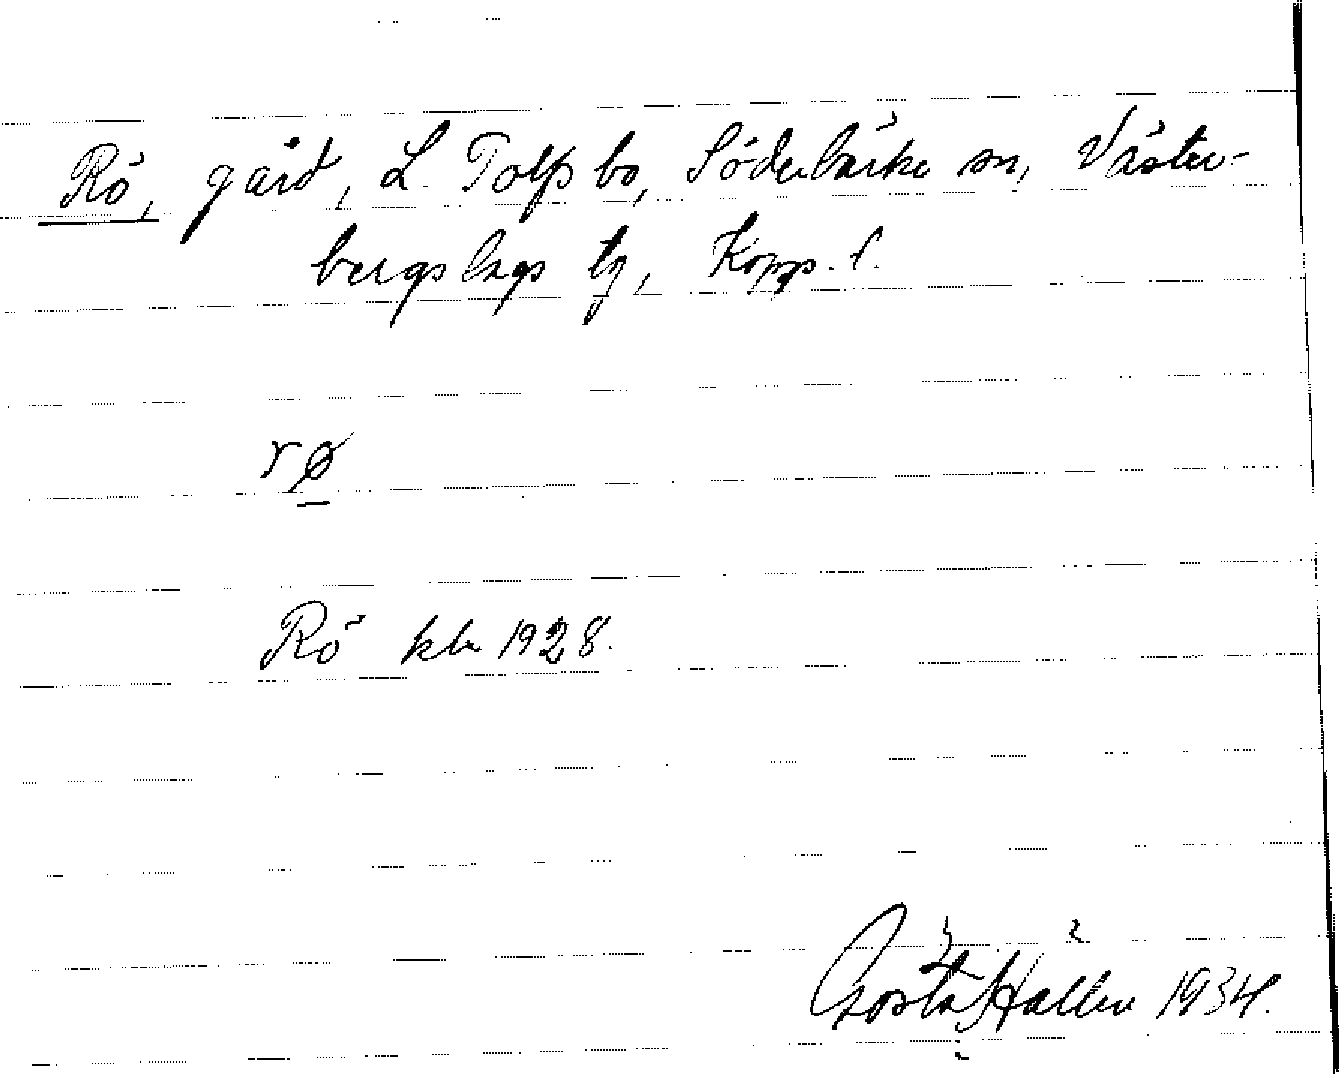 Rö, gård, L. Tolfsbo, Söderbärke sn, Väster-
bergslags tg, Kopp. l.
rø
Rö kbr 1928.
Gösta Hallén 1934.